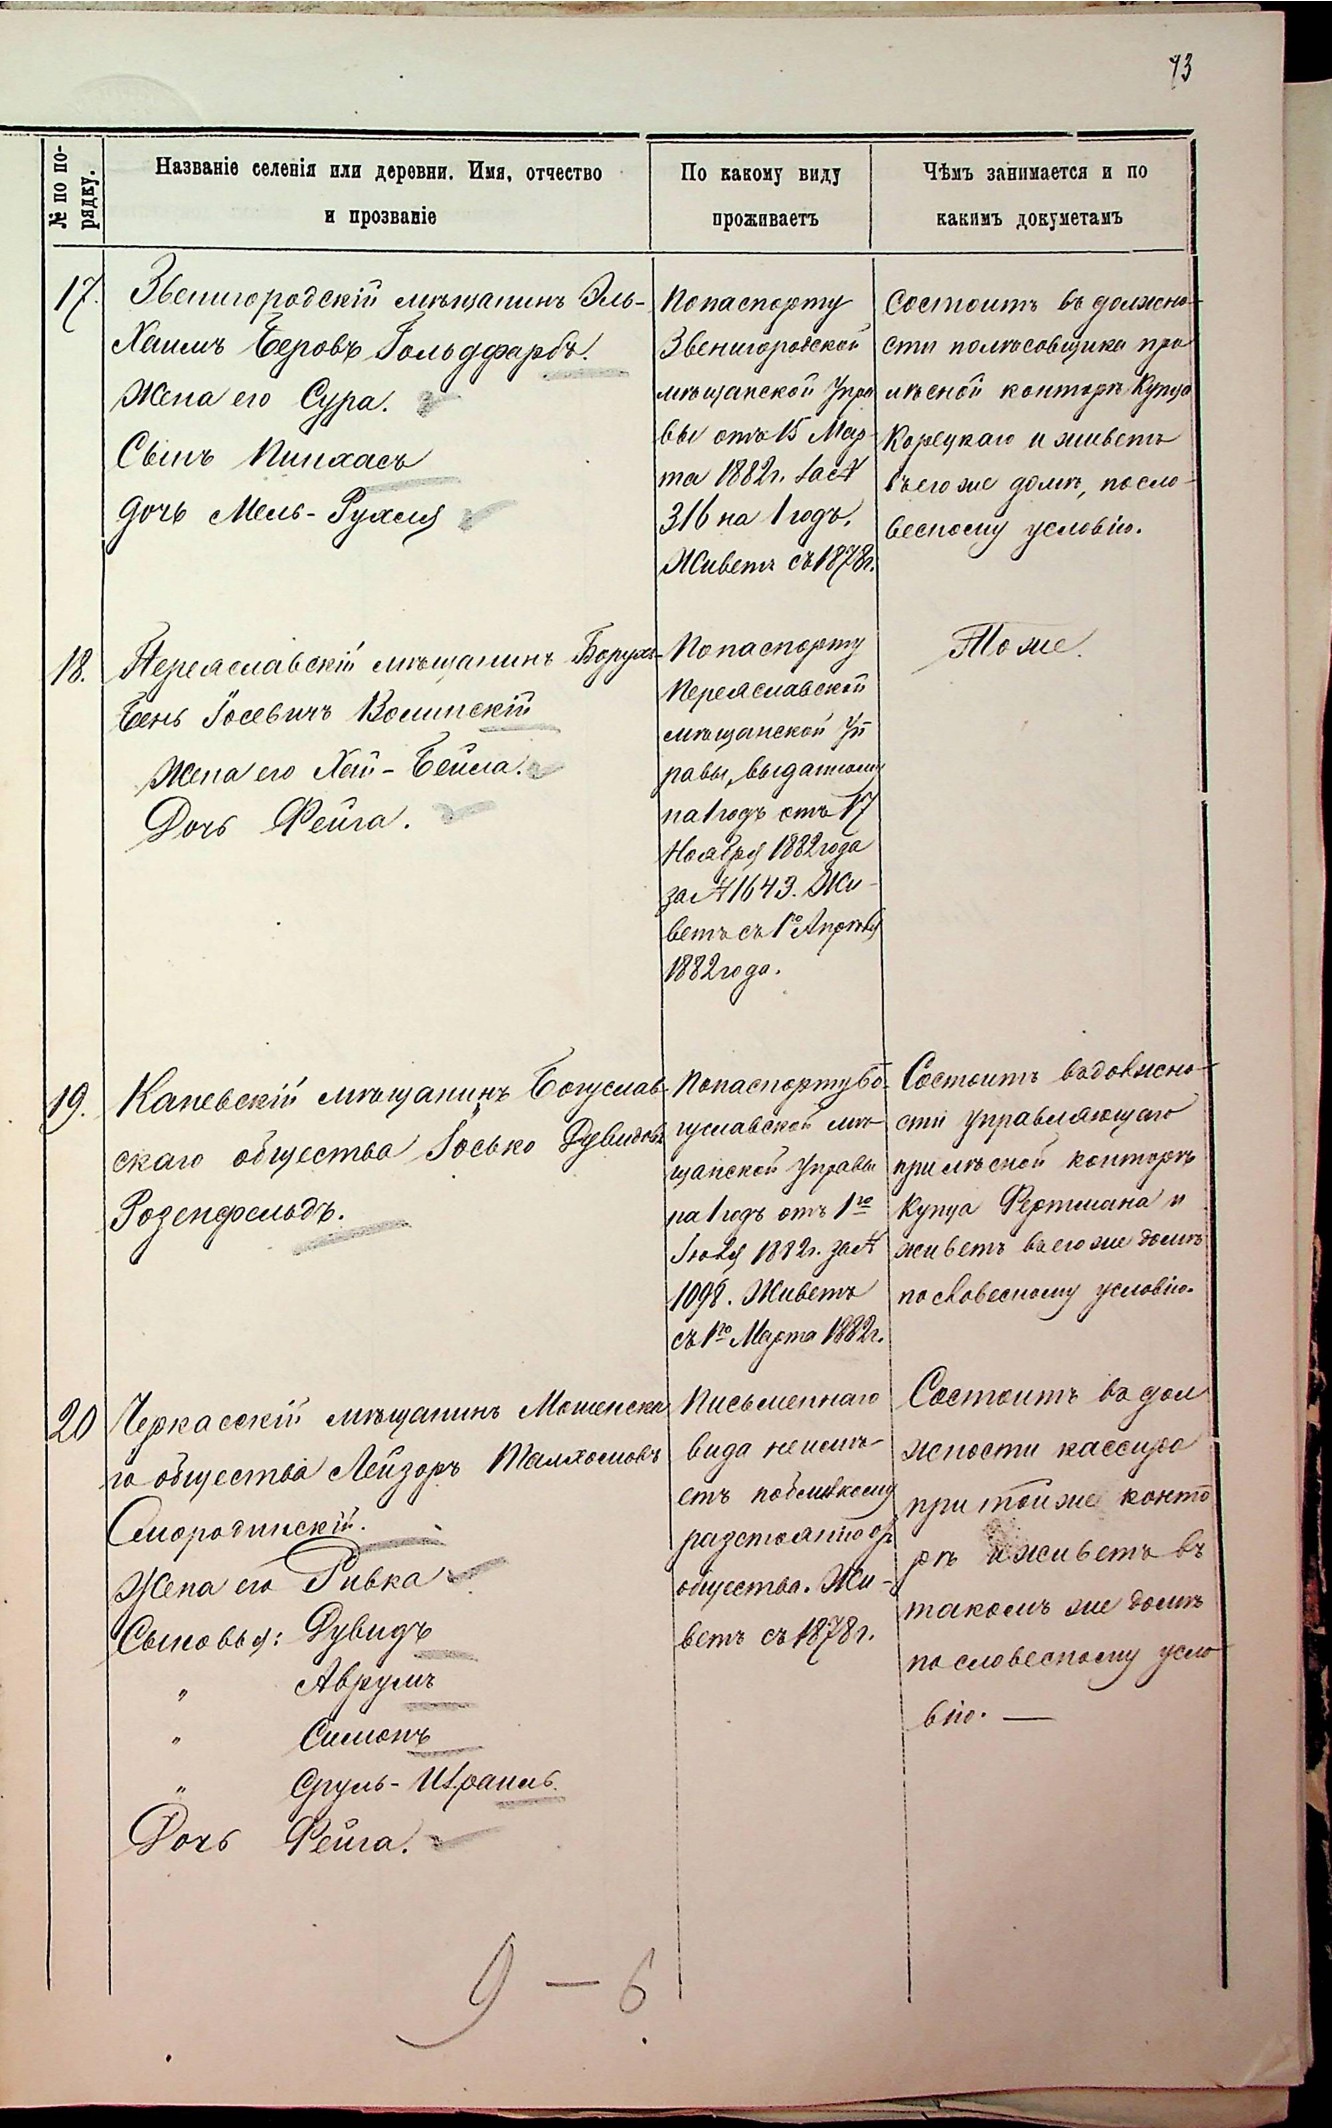 73
№ по по-
рядку.
Названіе селенія или деревни. Имя, отчество
и прозваніе
По какому виду
проживаетъ
Чѣмъ занимается и по
какимъ докуметамъ
17.
Звенигородскій мѣщанинъ Эль-
Хаимъ Беровъ Гольдфарбъ.
Жена его Сура.
Сынъ Пинхасъ
дочь Мель-Рухля
По паспорту
Звенигородской
мѣщанской Упра
вы отъ 15 Мар-
та 1882 г. за №
316 на 1 годъ.
Живетъ съ 1878 г.
Состоитъ въ должно-
сти полѣсовщика при
лѣсной конторѣ Купца
Корецкаго и живетъ
въ его же домѣ, по сло-
весному условію.
18.
Переяславскій мѣщанинъ Борухъ-
Бень Іосевичъ Волинскій
Жена его Хай-Бейла.
Дочь Фейга.
По паспорту
Переяславской
мѣщанской Уп
равы, выданному
на 1 годъ отъ 17
Ноября 1882 года
за № 1643. Жи-
ветъ съ 1го Апрѣля
1882 года.
Тоже.
19.
Каневскій мѣщанинъ Богуслав-
скаго общества Іосько Дувидовъ
Розенфельдъ.
По паспорту Бо-
гуславской мѣ-
щанской Управы
на 1 годъ отъ 1го
Іюля 1882 г. за №
1098. Живетъ
съ 1го Марта 1882 г.
Состоитъ въ должно-
сти управляющаго
при лѣсной конторѣ
купца Фертмана и
живетъ въ его же домѣ
по словесному условію.
20
Черкасскій мѣщанинъ Мошенска
го общества Лейзоръ
Смородинскій.
Жена его Ривка
Сыновья: Дувидъ
" Аврумъ
" Симонъ
" Сруль-Израиль.
Дочь Фейга.
Письменнаго
вида не имѣ-
етъ по близкому
разстоянію отъ
общества. Жи-
ветъ съ 1878 г.
Состоитъ въ дол
жности кассира
при той же конто
рѣ и живетъ въ
такомъ же домѣ
по словесному усло
вію. —
9 — 6